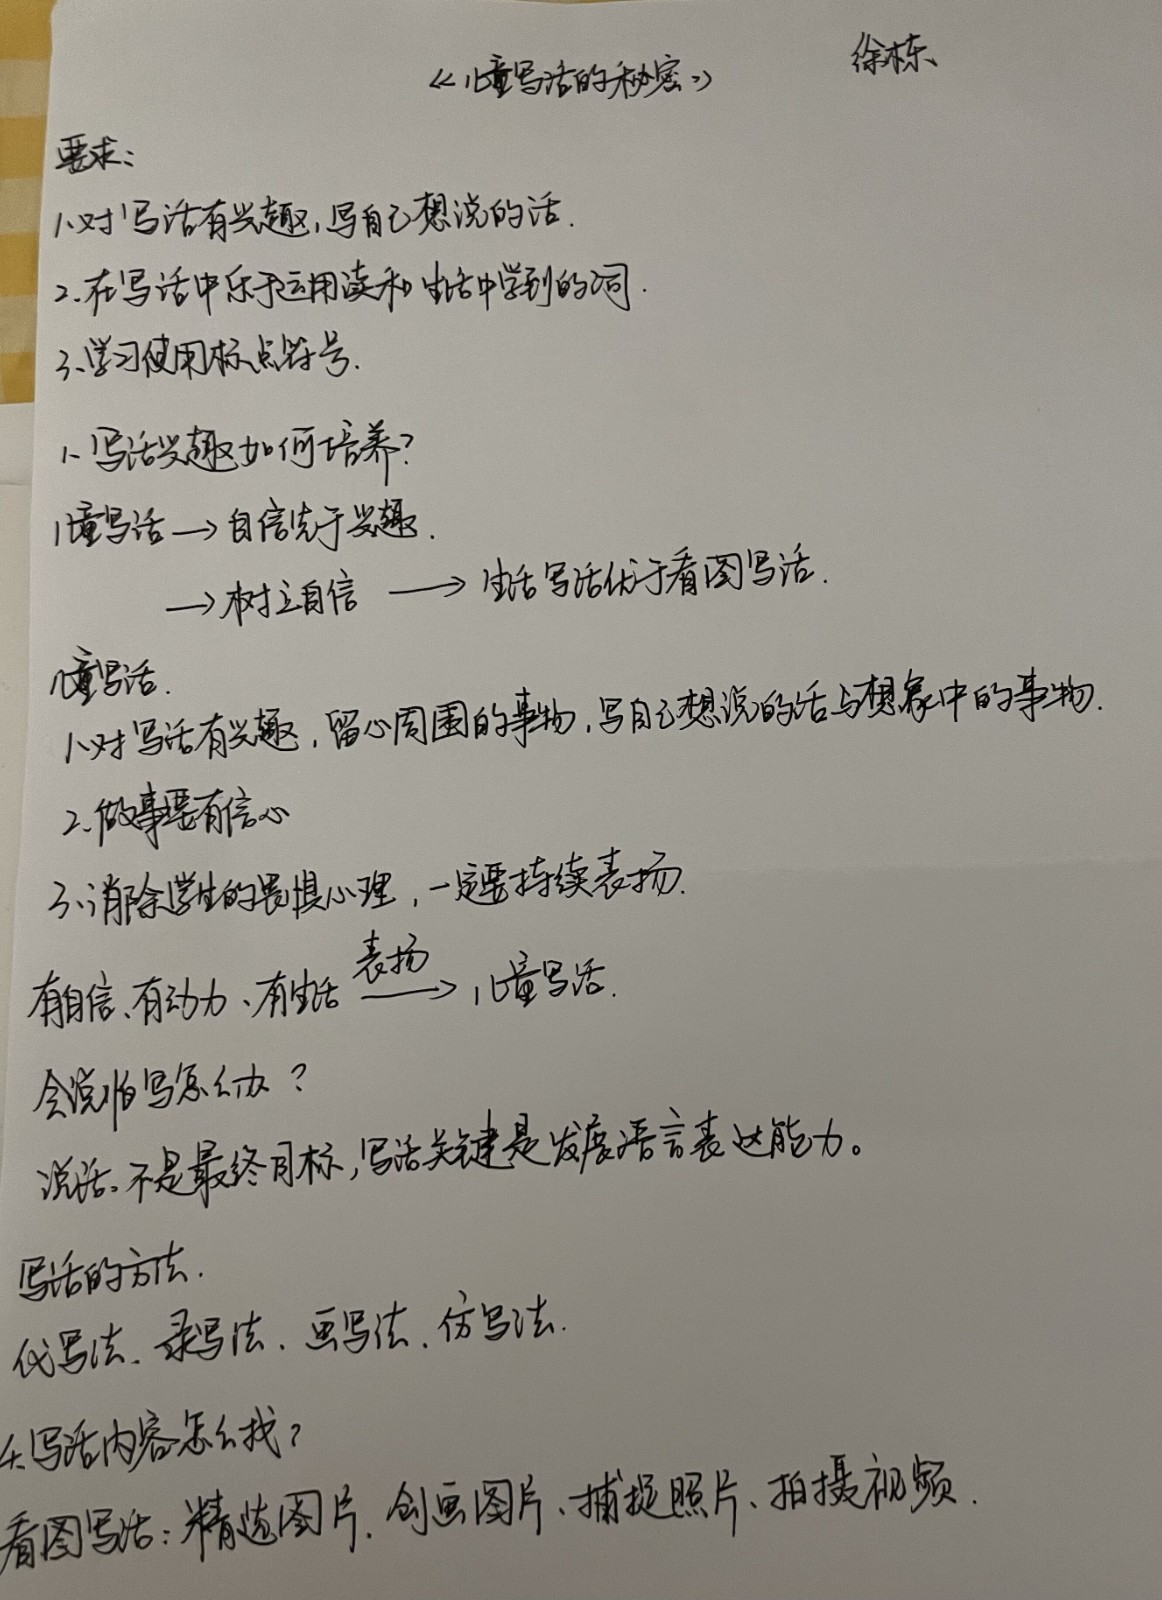 《儿童写话的秘密》 徐栋
要求：
1、对写话有兴趣，写自己想说的话．
2、在写话中乐于运用读和生活中学到的词．
3、学习使用标点符号．
1、写话兴趣如何培养？
儿童写话→自信先于兴趣．
→树立自信 → 生活写话优于看图写话．
儿童写话．
1、对写话有兴趣，留心周围的事物，写自己想说的话与想象中的事物．
2、做事要有信心
3、消除学生的畏惧心理，一定要持续表扬．
有自信、有动力、有生活 表扬→ 儿童写话．
会说怕写怎么办？
说话、不是最终目标，写话关键是发展语言表达能力。
写话的方法．
代写法、录写法、画写法、仿写法．
4、写话内容怎么找？
看图写话：精选图片、创画图片、捕捉照片、拍摄视频．